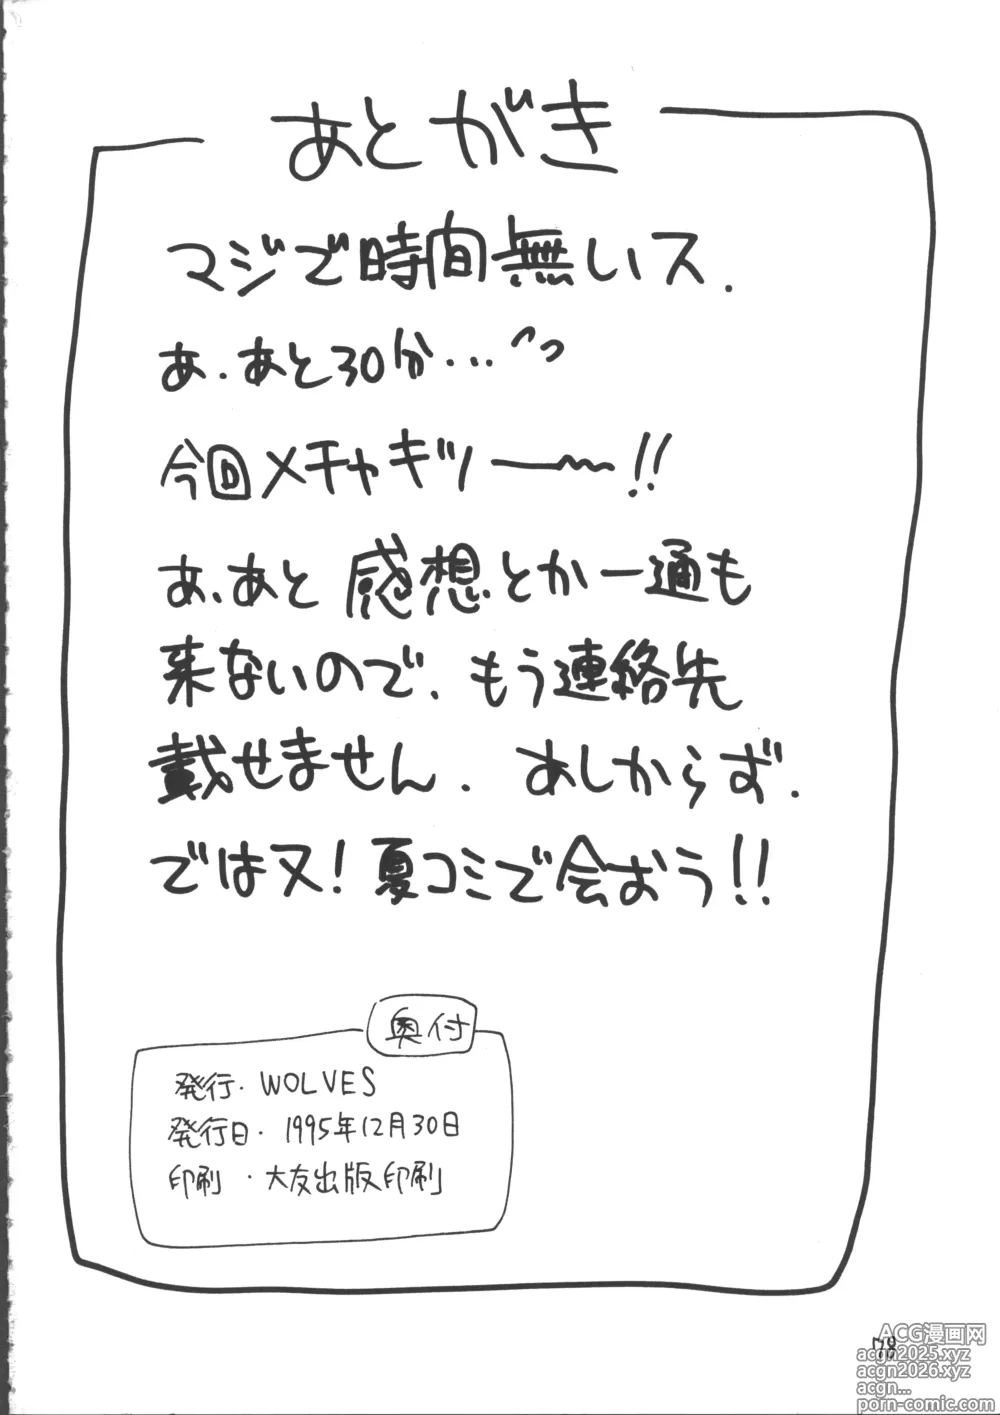 あとがき
マジで時間無いス.
あ.あと30分...
今回メチャキツー〜!!
あ、あと 感想とか一通も
来ないので、もう連絡先
載せません. あしからず.
では又! 夏コミで会おう!!
奥付
発行・WOLVES
発行日・1995年12月30日
印刷・大友出版印刷
78
ACG漫画网
acgn2025.xyz
acgn2026.xyz
acgn...
porn-comic.com